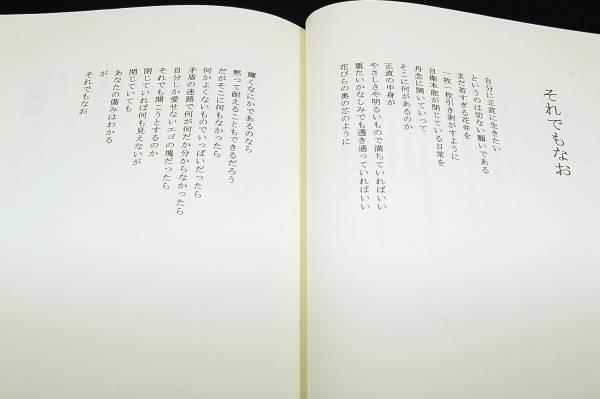 それでもなお
自分に正直に生きたい
というのは切ない願いである
まだ若すぎる花弁を
一枚一枚引き剥がすように
自衛本能が閉じている日常を
丹念に開いていって
そこに何があるのか
正直の中身が
やさしさや明るいもので満ちていればいい
重たいかなしみでも透き通っていればいい
花びらの奥の芯のように
輝くなにかであるのなら
黙って耐えることもできるだろう
だがそこに何もなかったら
何かよくないものでいっぱいだったら
矛盾の迷路で何が何だか分からなかったら
自分しか愛せないエゴの塊だったら
それでも開こうとするのか
閉じていれば何も見えないが
閉じていても
あなたの傷みはわかる
が
それでもなお